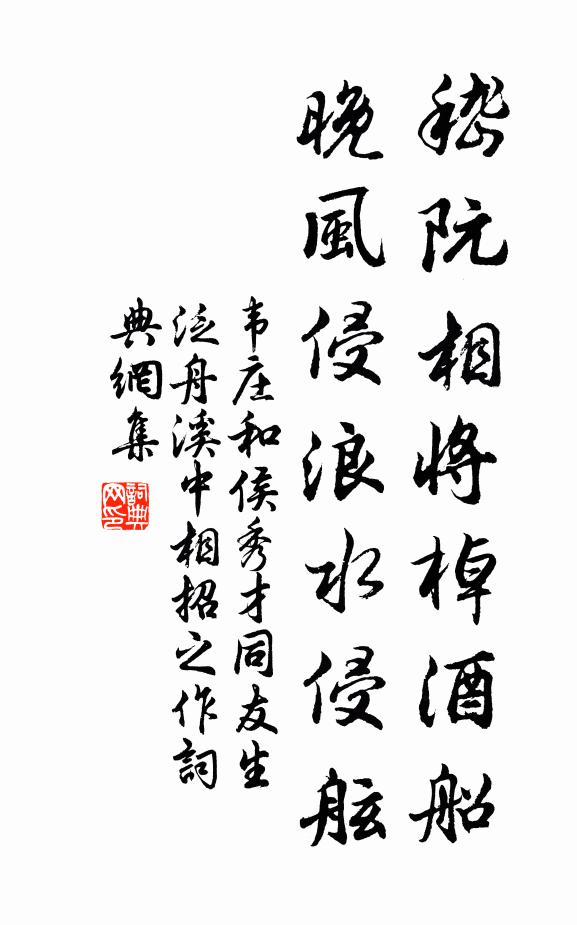 嵇阮相将棹酒船
晚風侵浪水侵舷
韦庄和侯秀才同友生
泛舟溪中相招之作詞
典網集
詞典
网印